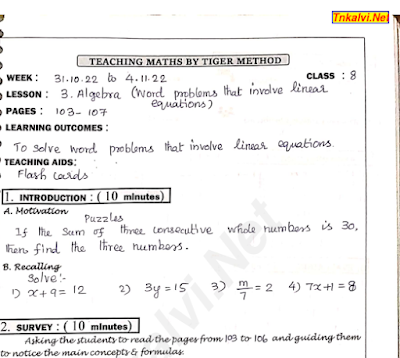 Tnkalvi.Net
TEACHING MATHS BY TIGER METHOD
WEEK : 31.10.22 to 4.11.22 CLASS : 8
LESSON : 3. Algebra (Word problems that involve linear
equations)
PAGES : 103-107
LEARNING OUTCOMES :
To solve word problems that involve linear equations.
TEACHING AIDS:
Flash cards
1. INTRODUCTION : ( 10 minutes)
A. Motivation
Puzzles
If the sum of three consecutive whole numbers is 30,
then find the three numbers.
B. Recalling
Solve:-
1) x+9=12 2) 3y=15 3) m/7=2 4) 7x+1=8
2. SURVEY : ( 10 minutes)
Asking the students to read the pages from 103 to 106 and guiding them
to notice the main concepts & formulas.
alvi.Net